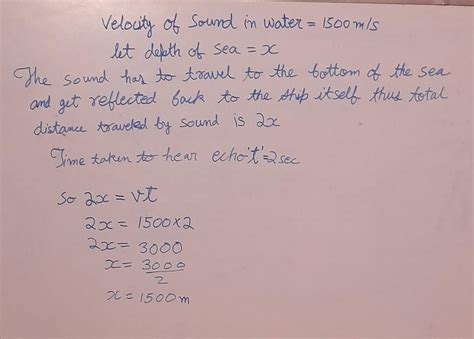 Velocity of Sound in water = 1500 m/s
let depth of sea = x
The sound has to travel to the bottom of the sea
and get reflected back to the ship itself thus total
distance traveled by sound is 2x
Time taken to hear echo 't' = 2 sec
So 2x = vt
2x = 1500×2
2x = 3000
x = 3000/2
x = 1500 m